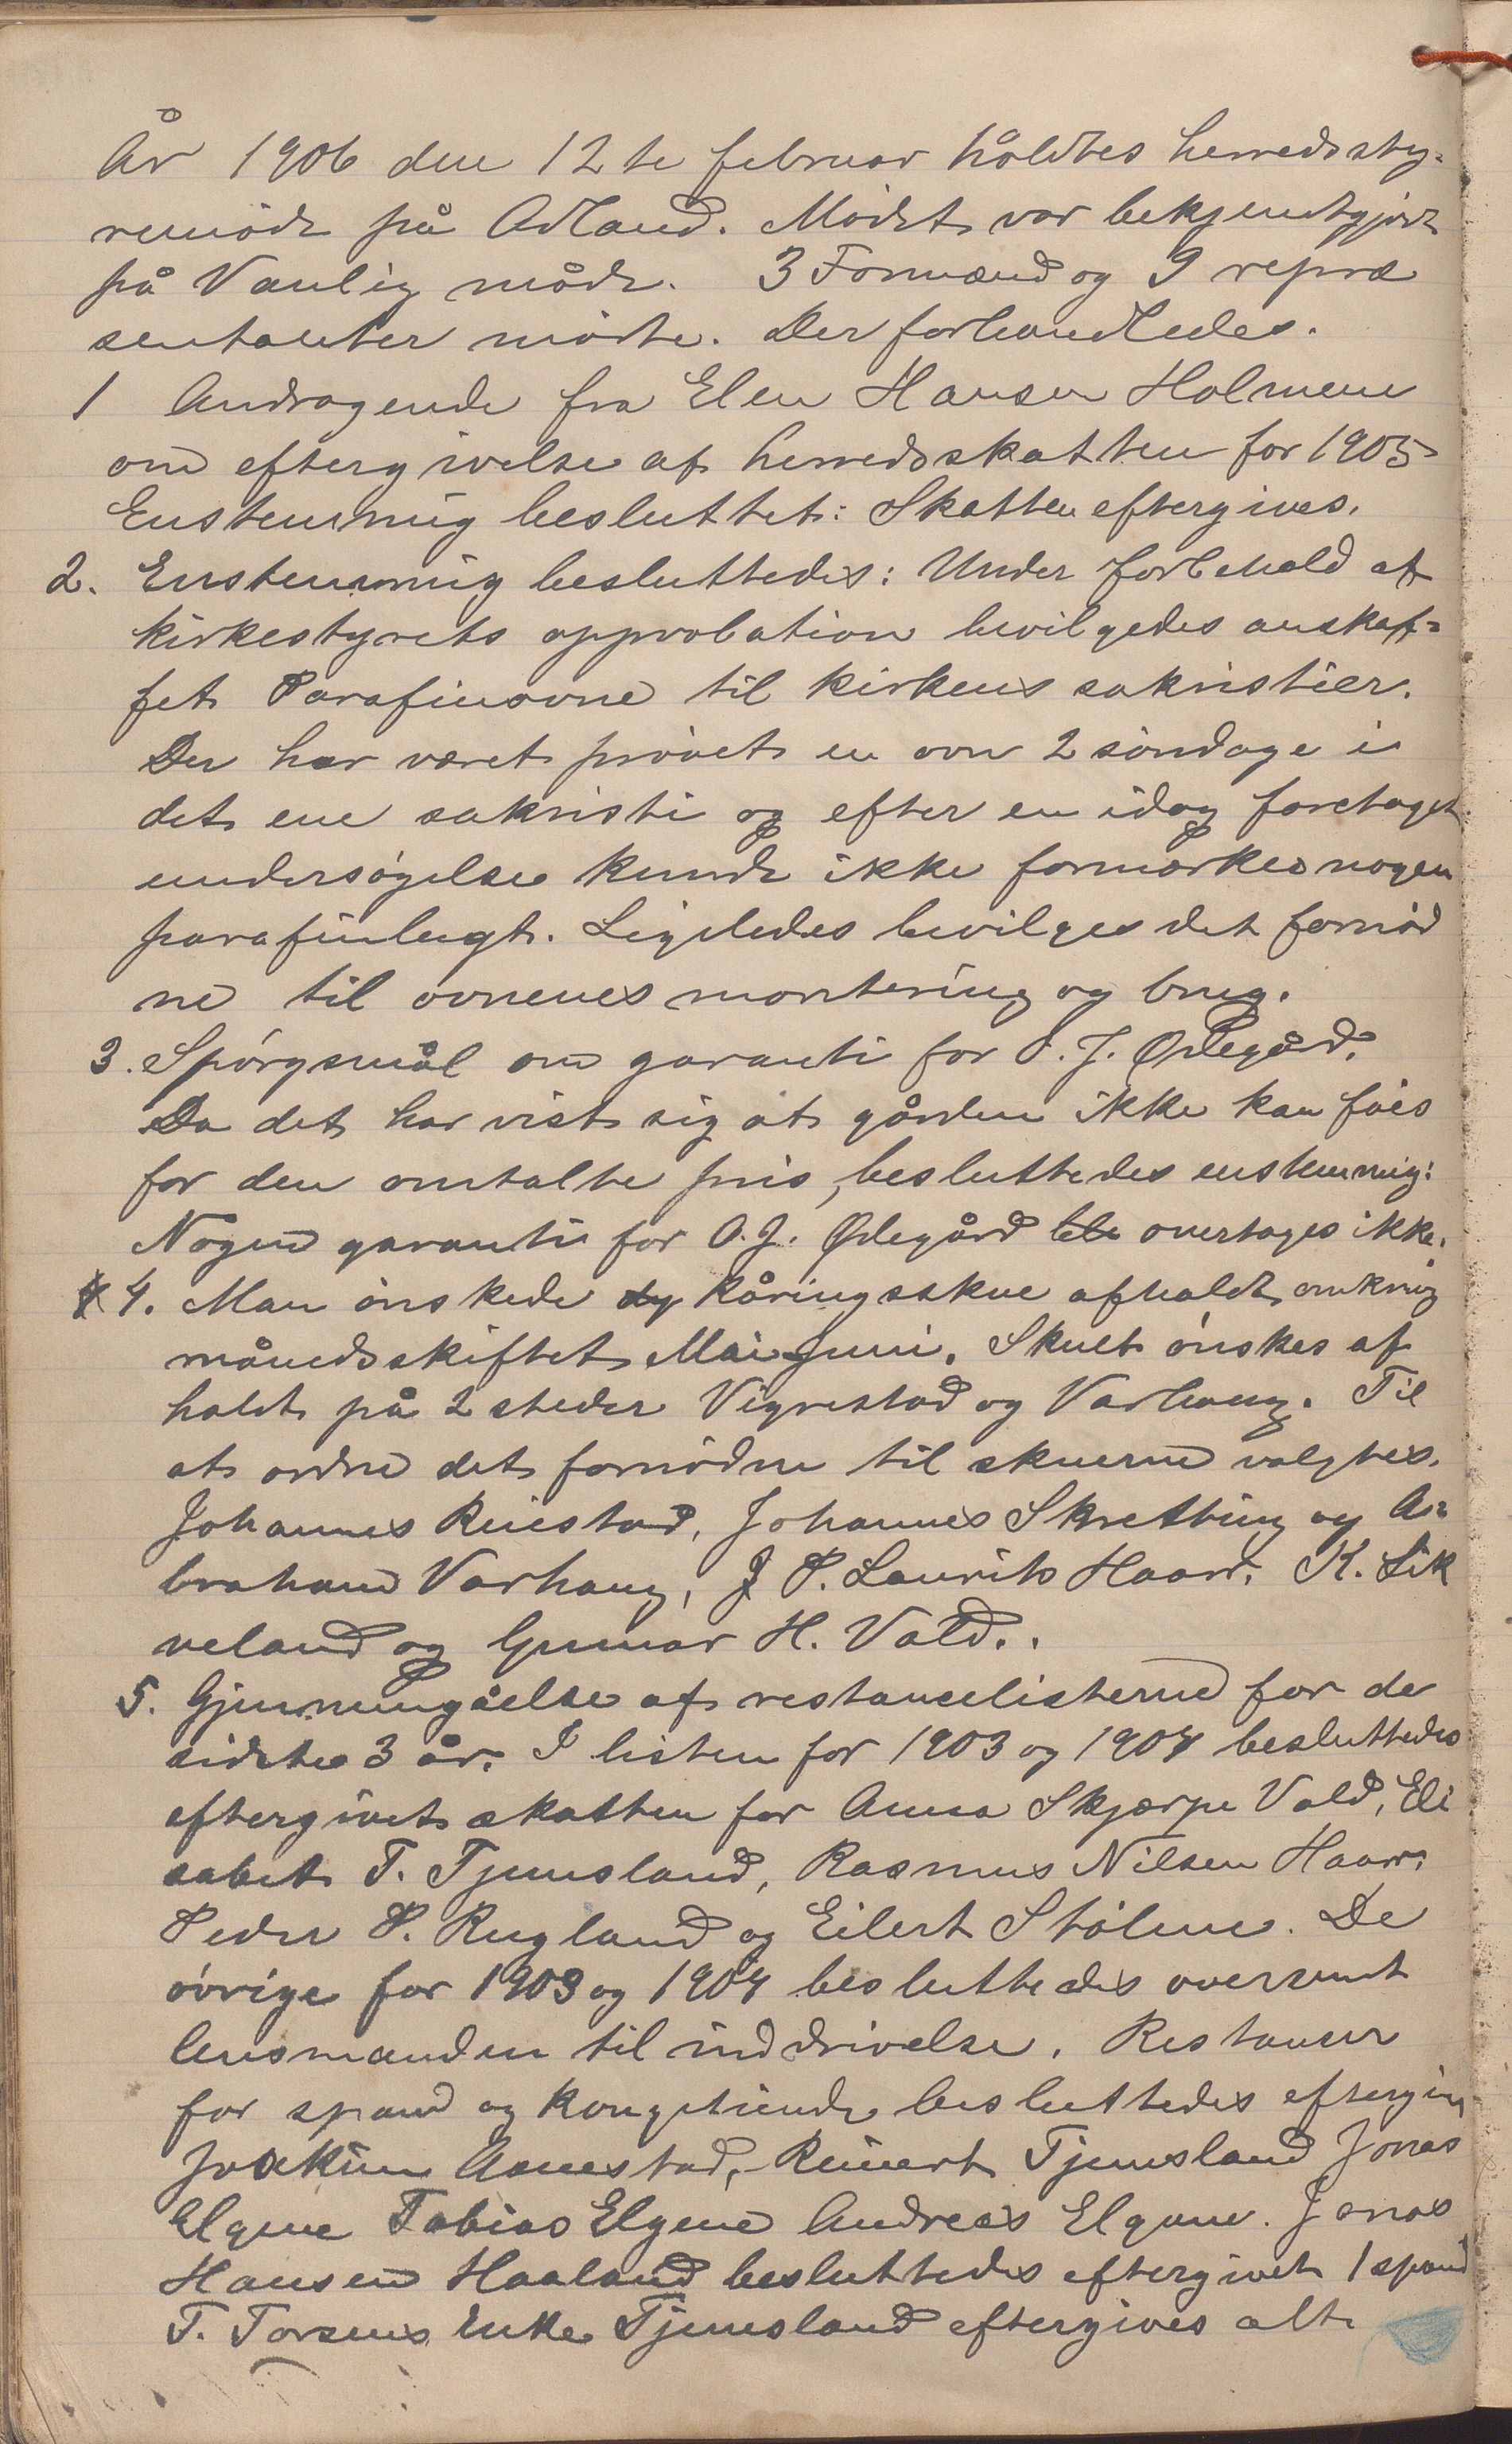 År 1906 den 12te februar håldtes herredssty-
remöde på Odland. Mödet var bekjendtgjört
på Vanlig måde. 3 Formænd og 9 repræ
sentanter mödte. Der forhandledes.
1 Andragende fra Elen Hansen Holmen
om eftergivelse af herredsskatten for 1905
Enstemmig besluttet: Skatten eftergives.
2. Enstemmig besluttedes: Under forbehold af
kirkestyrets approbation bevilgedes anskaf-
fet Parafinovne til kirkens sakristier.
Der har været prövet en ovn 2 söndage i
det ene sakristi og efter en idag foretaget
undersögelse kunde ikke formærkes nogen
parafinlugt. Ligeledes bevilges det fornöd
ne til ovnenes montering og brug.
3. Spörgsmål om garanti for O. J. Ödegård.
Da det har vist sig at gården ikke kan fåes
for den omtalte pris, besluttedes enstemmig:
Nogen garanti for O. J. Ödegård overtages ikke.
4. Man önskede kåringsskue afholdt omkring
månedsskiftet Mai-Juni. Skuet önskes af
holdt på 2 steder Vigrestad og Varhaug. Til
at ordne det fornödne til skuerne valgtes.
Johannes Reiestad, Johannes Skretting og A-
braham Varhaug, J P. Laurits Haarr. K. Lik
veland og Gunnar H. Vold.
5. Gjennemgåelse af restancelisterne for de
sidste 3 år. I listen for 1903 og 1904 besluttedes
eftergivet skatten for Anna Skjærpe Vold, Eli
sabet T. Tjemsland, Rasmus Nilsen Haarr,
Peder P. Rugland og Eilert Stölene. De
övrige for 1903 og 1904 besluttedes oversendt
lensmanden til inddrivelse. Restancer
for spand og kongetiende besluttedes eftergiv
Joakim Aanestad, Reinert Tjemsland Jonas
Elgane Tobias Elgene Andreas Elgane. Jonas
Hansen Haaland besluttedes eftergivet 1 spand
T. Torsens Enke Tjemsland eftergives alt